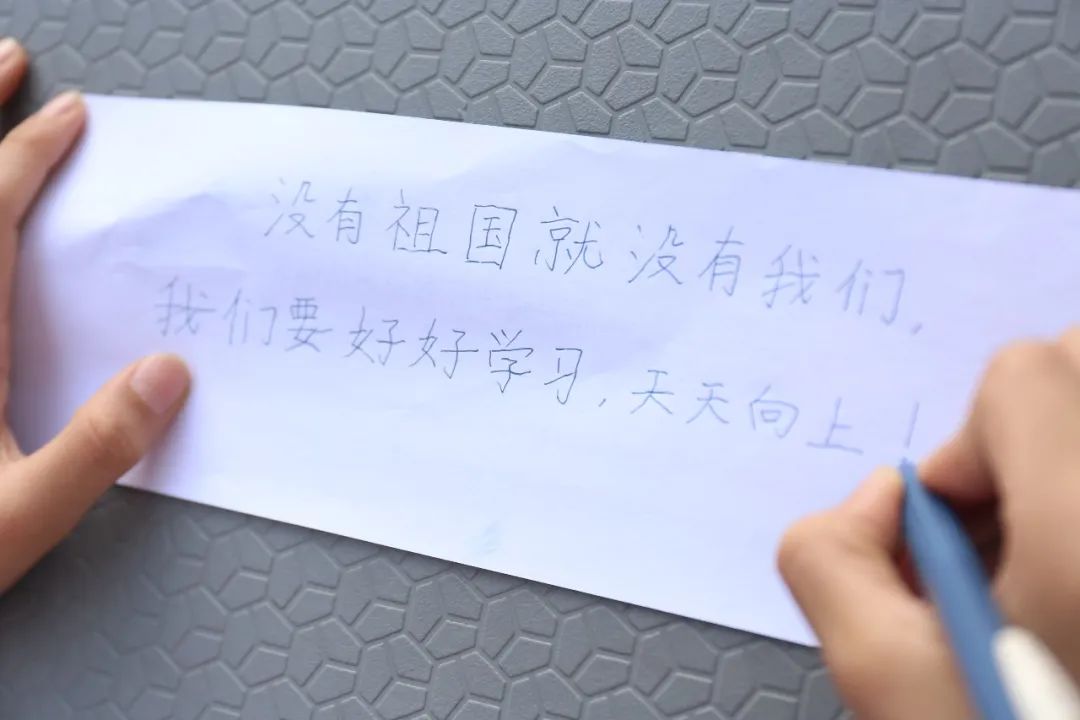 没有祖国就没有我们，
我们要好好学习，天天向上！